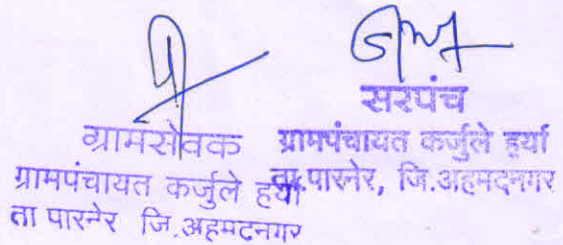 ग्रामसेवक
ग्रामपंचायत कर्जुले हर्या
ता पारनेर जि.अहमदनगर
सरपंच
ग्रामपंचायत कर्जुले हर्या
ता.पारनेर, जि.अहमदनगर